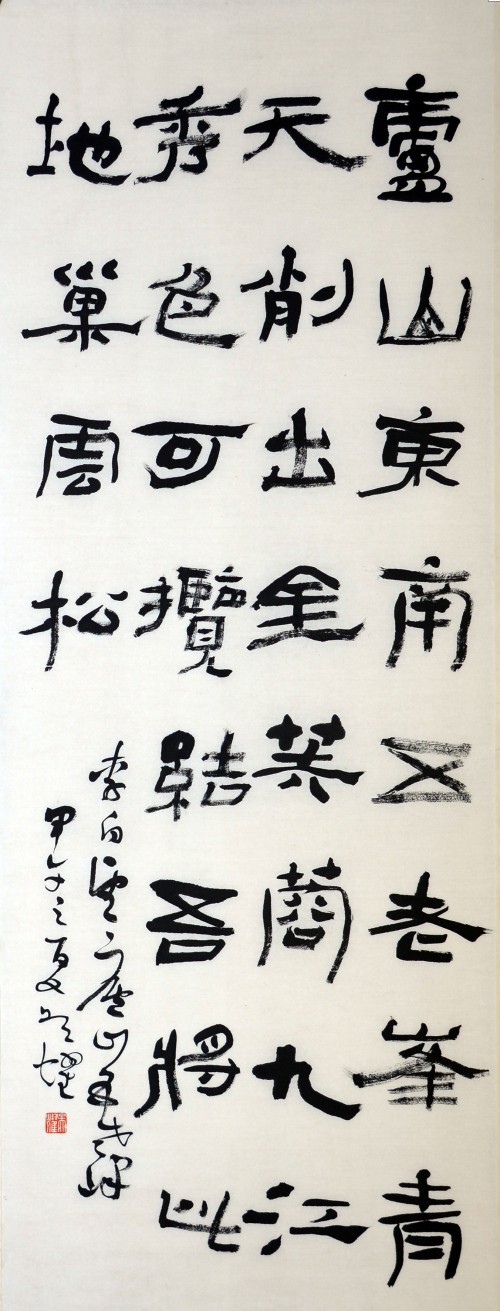 廬山東南五老峯青
天削出金芙蓉九江
秀色可攬結吾將此
地巢雲松
李白望廬山五老峰
甲午之夏